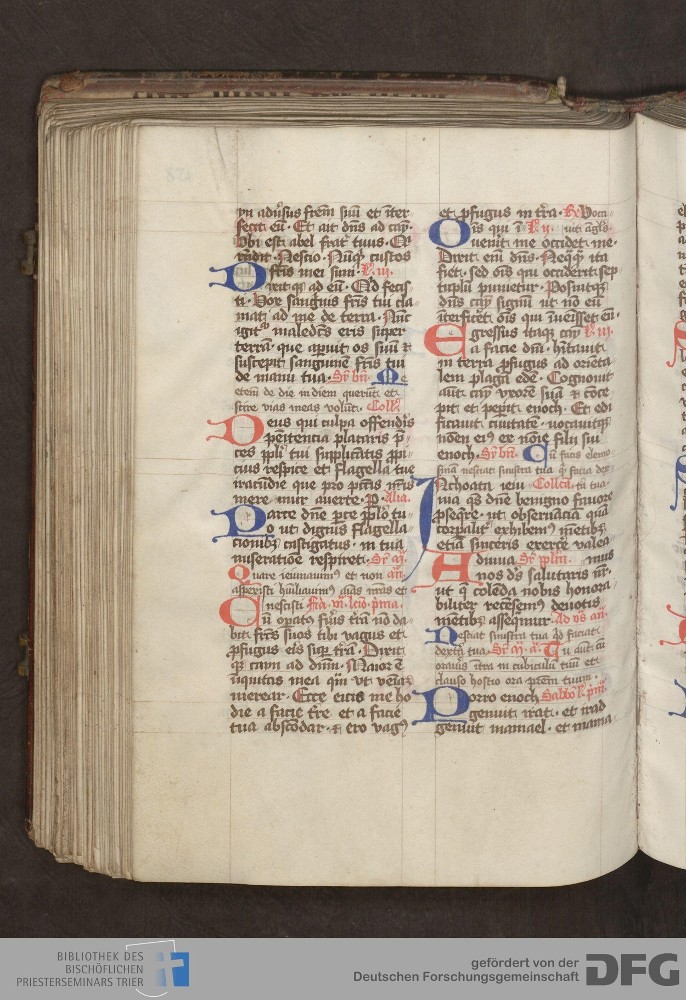 yn adv̓sus frēm suū et īter
fecit eū. Et ait dn̄s ad cayn.
Vbi est abel frat̓ tuus. Qi
rn̄dit. Nescio. Nūq̄ custos
fr̄is mei sum. L. iii.
Dixitq̧ ad eū. Qd fecis
ti. Vox sanguīs fr̄is tui cla
mat ad me de terra. Nūc
igit̓ maledc̄s eris super
terrā. que aperuit os suū et
suscepit sanguinē fr̄is tui
de manu tua. Sr̄ bn̄. Me
etenī de die in diem querūt et
scire vias meas volūt. Coll̄.
Deus qui culpa offendis̓
penitencia placaris p̄
ces ppl̄i tui supplicātis ꝓpi
cius respice et flagella tue
iracūdie que pro pctīs nr̄is
mere mur auerte. P. Alia.
Parce dn̄e pce pplo tu
o ut dignis flagella
cionibꝫ castigatus. in tua
miseratiōe respiret. Sr̄ aī.
Quare ieiunauim̓ et non an̄.
aspexisti hūiliauim̓ aīas nr̄as et
nescisti. Fīa vi. lc̄io prima.
Cū opatꝰ fu̓is tr̄ā nō da
bit fr̄cs suos tibi vagus et
ꝓfugus eis super tr̄ā. Dixit
q̧ cayn ad dnm̄. Maior ē
īiquitas mea qm̄ vt veīaꝫ
merear. Ecce eicis me ho
die a facie tr̄e et a facie
tua abscōdar. et ero vagꝰ
et ꝓfugus in tr̄a. Re Voca
Oīs qui ī L. ii. uit āgl̓s.
ūenit me occidet me.
Dixit ei dn̄s. Neqq̄ ita
fiet. sed oīs qui occiderit. sep
tuplū punietur. Posuitq̧
dn̄s cayn signū ut nō eū
īterficēt oīs qui īueīsset eū.
Egressus itaq̧ cayn L. iii.
a facie dnī. hītauit
in terra ꝓfugus ad orienta
lem plagā edē. Cognouit
aūt cayn vxorē suā et cōce
pit et peperit enoch. Et edi
ficauit ciuitatē. uocauitq̧
nōen ei̓ ex nōie filii sui
enoch. Sr̄ bn̄. Cū facis elemo
sinā nesciat sinistra tua q̄ facia dex
Inchoata ieiu Collcā. ta tua
nia qs̄ dn̄e benigno fauore
ꝓseqre. ut obseruāciā quā
corpalit̓ exhibem̓ mētibꝫ
etiā sinceris exerce̓ valea
Adiuua Sr̄ pl̄m. mus
nos dˢ salutaris nr̄.
ut q̄ colēda nobis honora
biliter recēsem̓ deuotis
mētibꝫ assequmur. Ad vs̄ an̄.
Nesciat sinistra tua qd faciat
dextꝫ tua. Sr̄ aī a. Tu aūt cū
oraūs ītra in cubiculū tuū et
clauso hostio ora prēm tuum.
Porro enoch Sabbo l. pm̄a.
genuit irat. et irad
genuit mamael. et mama
BIBLIOTHEK DES
BISCHÖFLICHEN
PRIESTERSEMINARS TRIER
gefördert von der
Deutschen Forschungsgemeinschaft
DFG